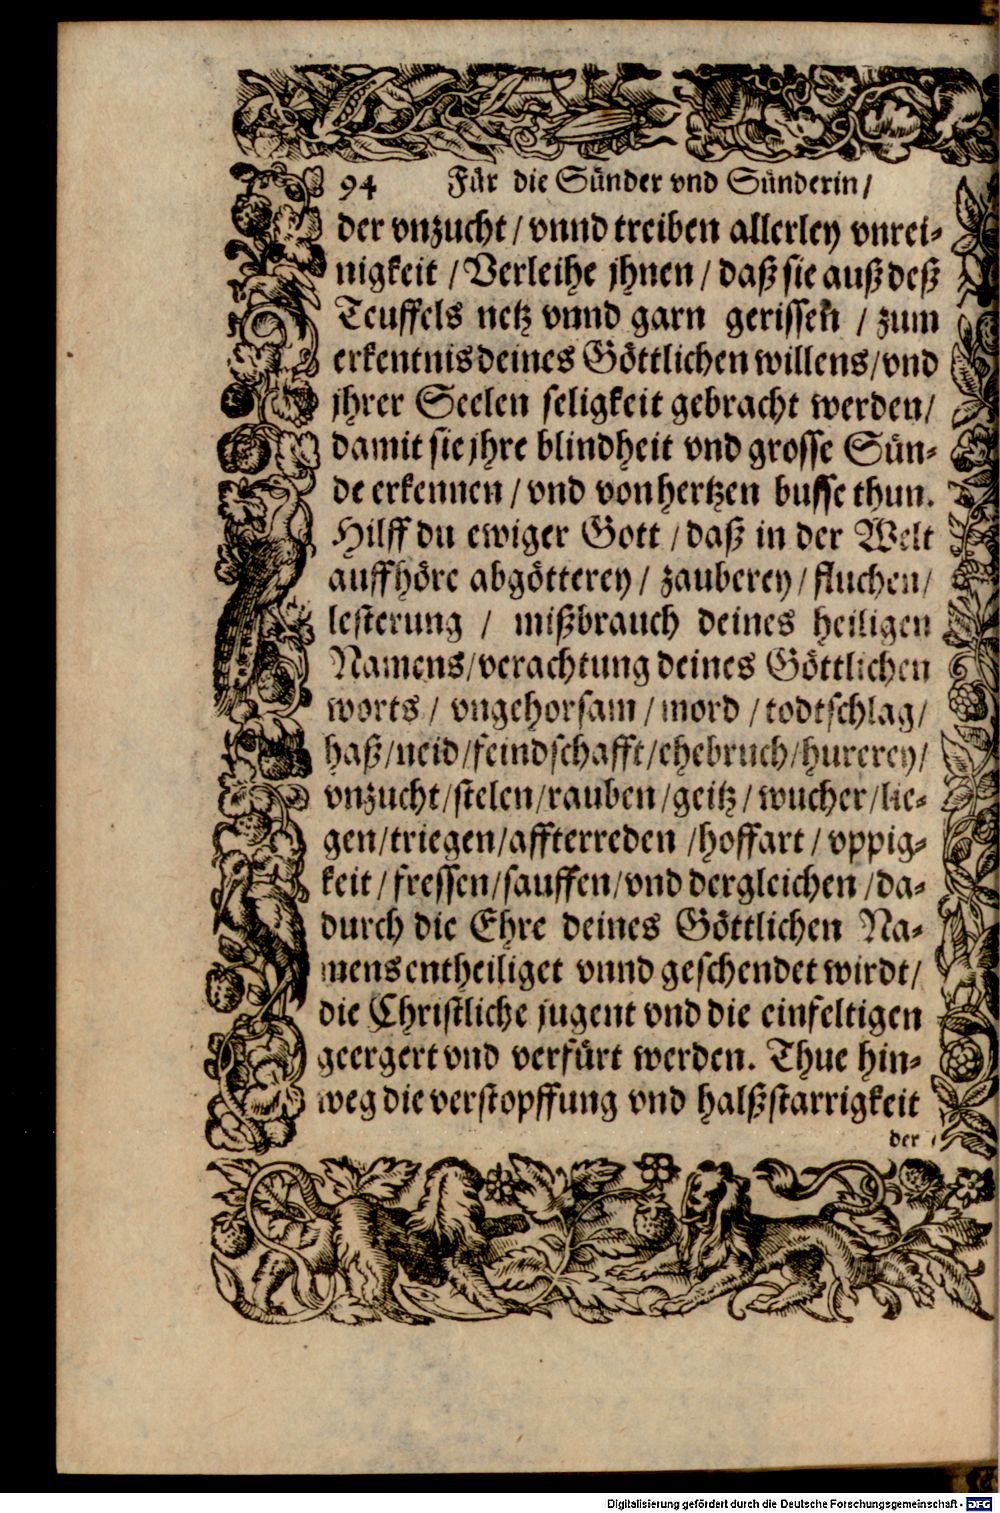 94 Für die Sünder vnd Sünderin/
der vnzucht/ vnnd treiben allerley vnrei-
nigkeit /Verleihe jhnen/ daß sie auß deß
Teuffels netz vnnd garn gerissen / zum
erkentnis deines Göttlichen willens/vnd
jhrer Seelen seligkeit gebracht werden/
damit sie jhre blindheit vnd grosse Sün-
de erkennen/ vnd von hertzen busse thun.
Hilff du ewiger Gott/ daß in der Welt
auffhöre abgötterey/ zauberey/ fluchen/
lesterung / mißbrauch deines heiligen
Namens/verachtung deines Göttlichen
worts/ vngehorsam/mord /todtschlag/
haß/neid/feindschafft/ehebruch/hurerey/
vnzucht/stelen/rauben/geitz/ wucher/lie-
gen/triegen/affterreden /hoffart/ vppig-
keit/ fressen/sauffen/vnd dergleichen /da-
durch die Ehre deines Göttlichen Na-
mens entheiliget vnnd geschendet wirdt/
die Christliche jugent vnd die einfeltigen
geergert vnd verfürt werden. Thue hin-
weg die verstopffung vnd halßstarrigkeit
der
Digitalisierung gefördert durch die Deutsche Forschungsgemeinschaft - DFG